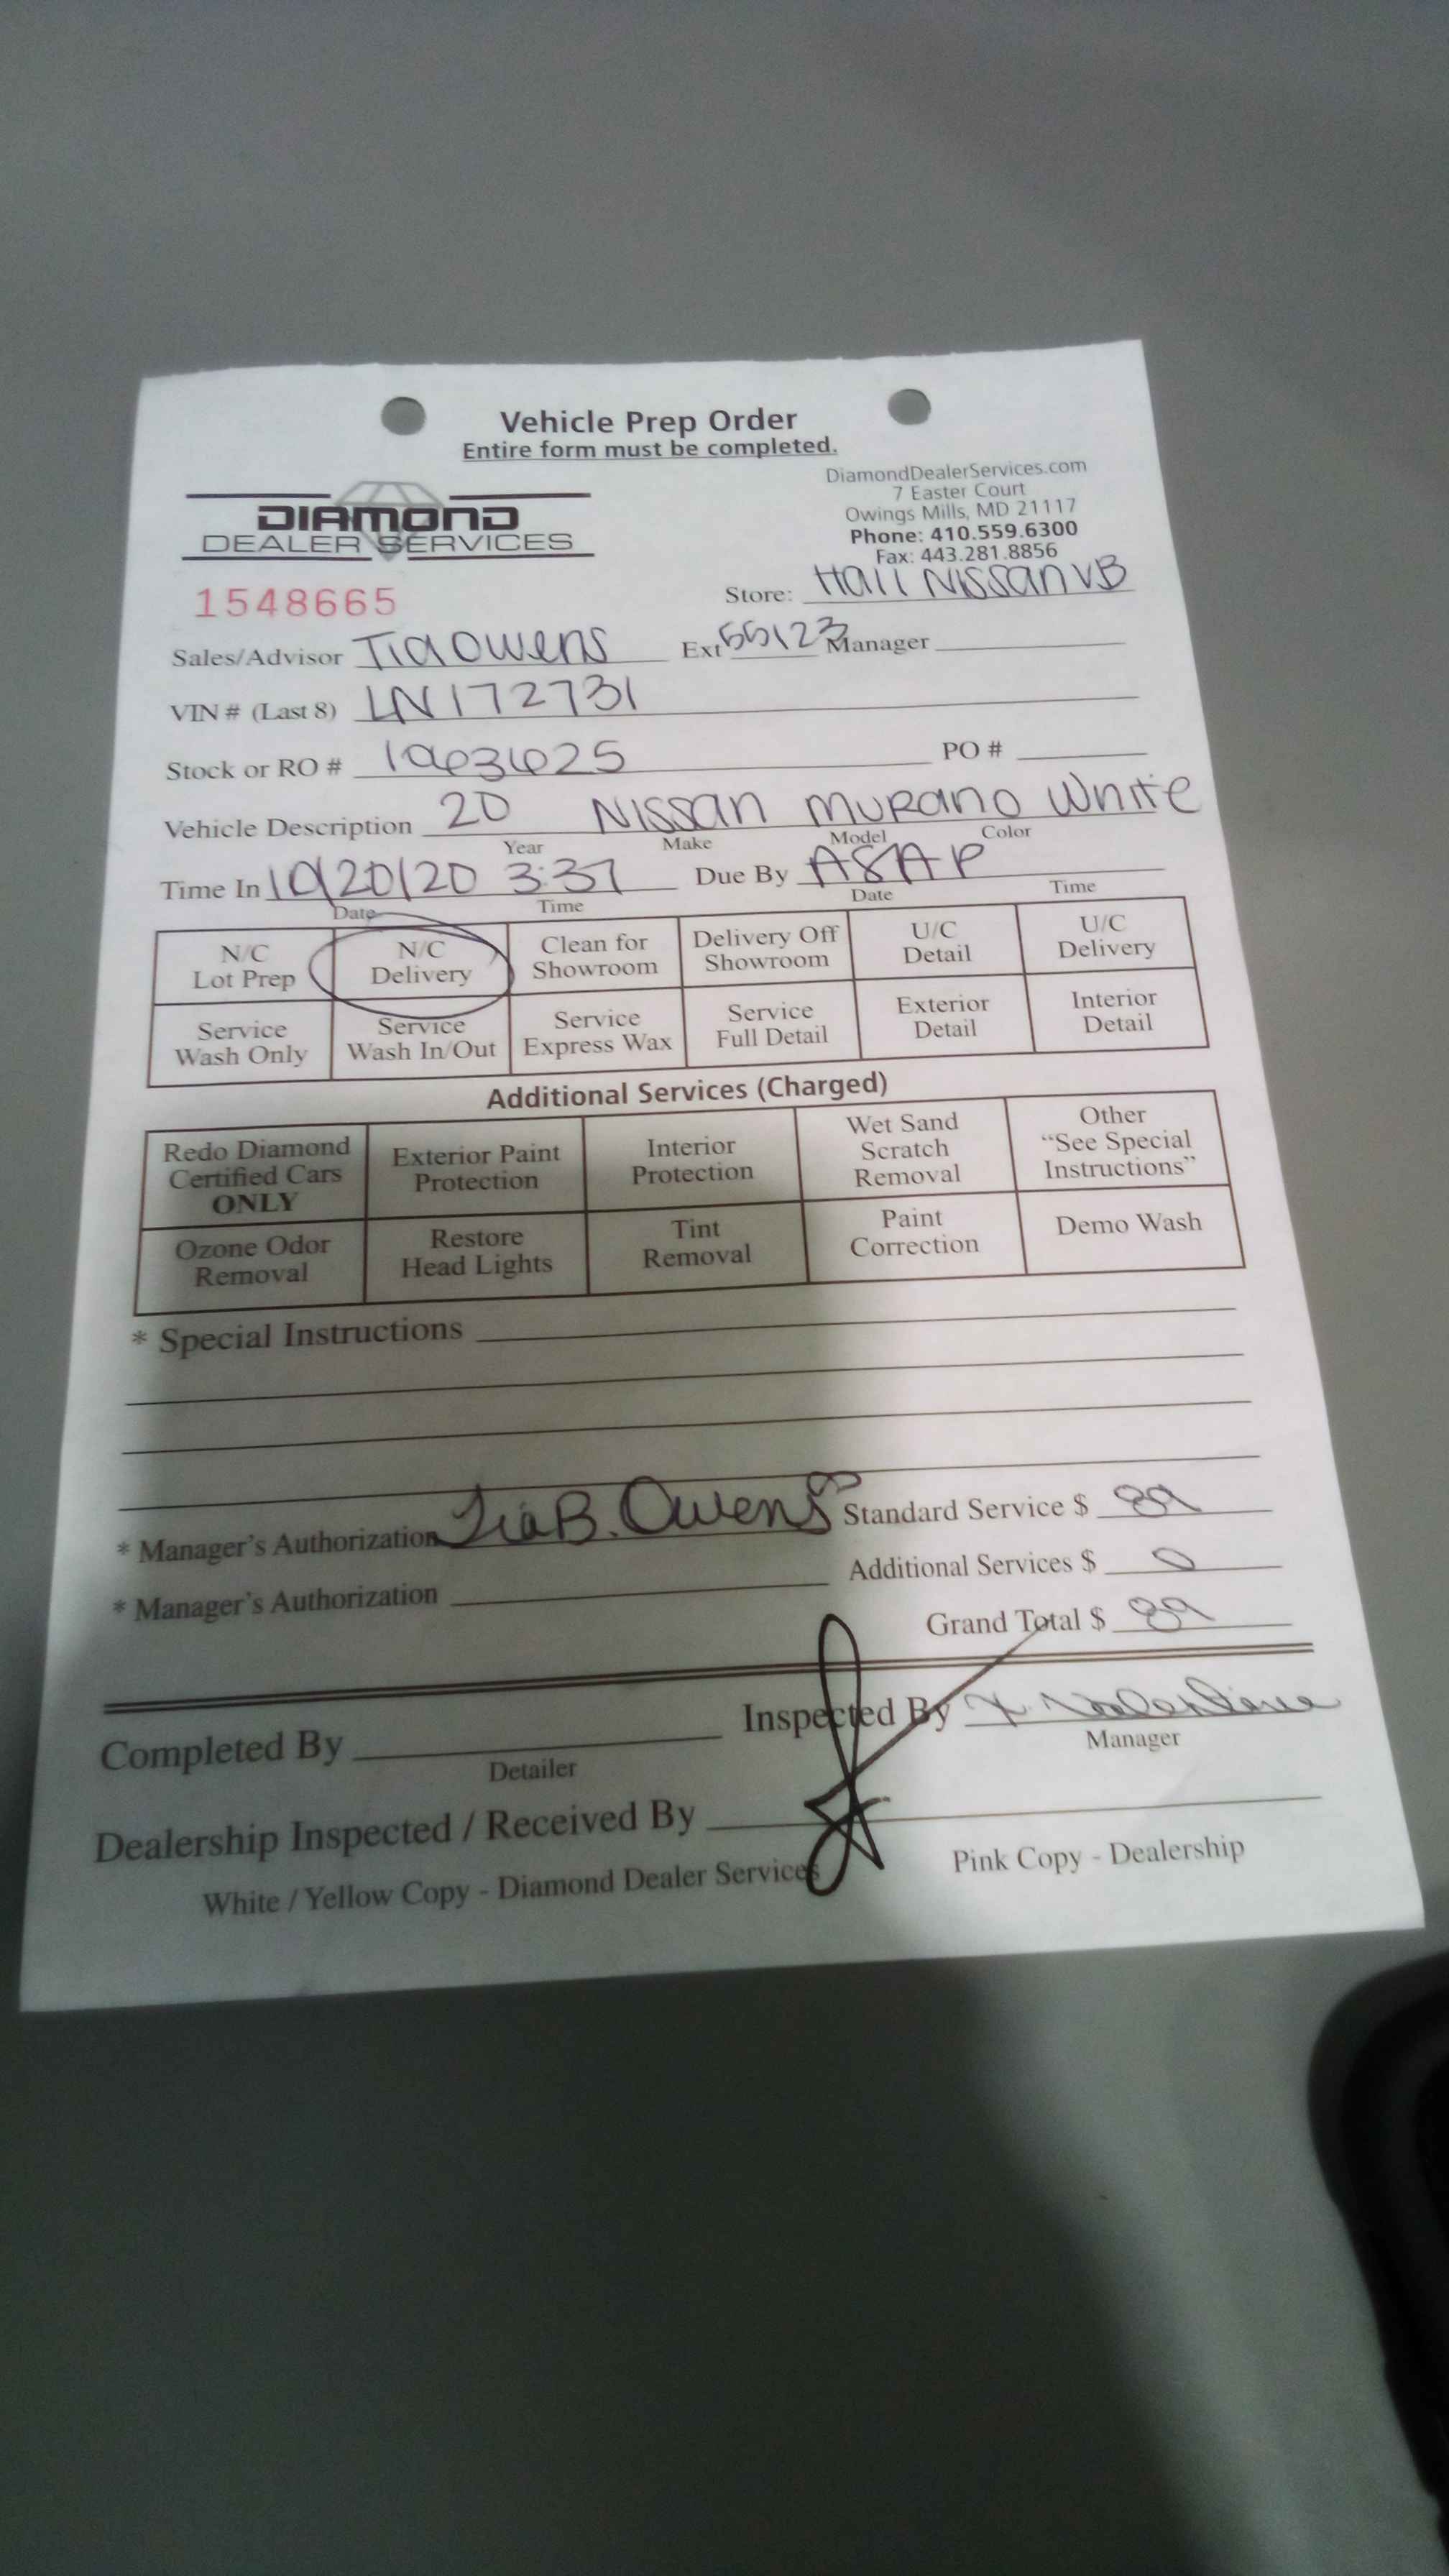 Vehicle Prep Order
Entire form must be completed.
DIAMOND
DEALER SERVICES
DiamondDealerServices.com
7 Easter Court
Owings Mills, MD 21117
Phone: 410.559.6300
Fax: 443.281.8856
1548665
Store: Hall Nissan VB
Sales/Advisor Tia Owens Ext 55123 Manager
VIN # (Last 8) LN172731
Stock or RO # PO #
Vehicle Description 20 Nissan Murano White
Year Make Model Color
Time In 10/20/20 3:37 Due By ASAP
Date Time Date Time
N/C Lot Prep N/C Delivery Clean for Showroom Delivery Off Showroom U/C Detail U/C Delivery
Service Wash Only Service Wash In/Out Service Express Wax Service Full Detail Exterior Detail Interior Detail
Additional Services (Charged)
Redo Diamond Certified Cars ONLY Exterior Paint Protection Interior Protection Wet Sand Scratch Removal Other "See Special Instructions"
Ozone Odor Removal Restore Head Lights Tint Removal Paint Correction Demo Wash
* Special Instructions
* Manager's Authorization Tia B. Owens Standard Service $ 89
* Manager's Authorization Additional Services $ 0
Grand Total $ 89
Completed By Inspected By
Detailer Manager
Dealership Inspected / Received By
White / Yellow Copy - Diamond Dealer Services Pink Copy - Dealership